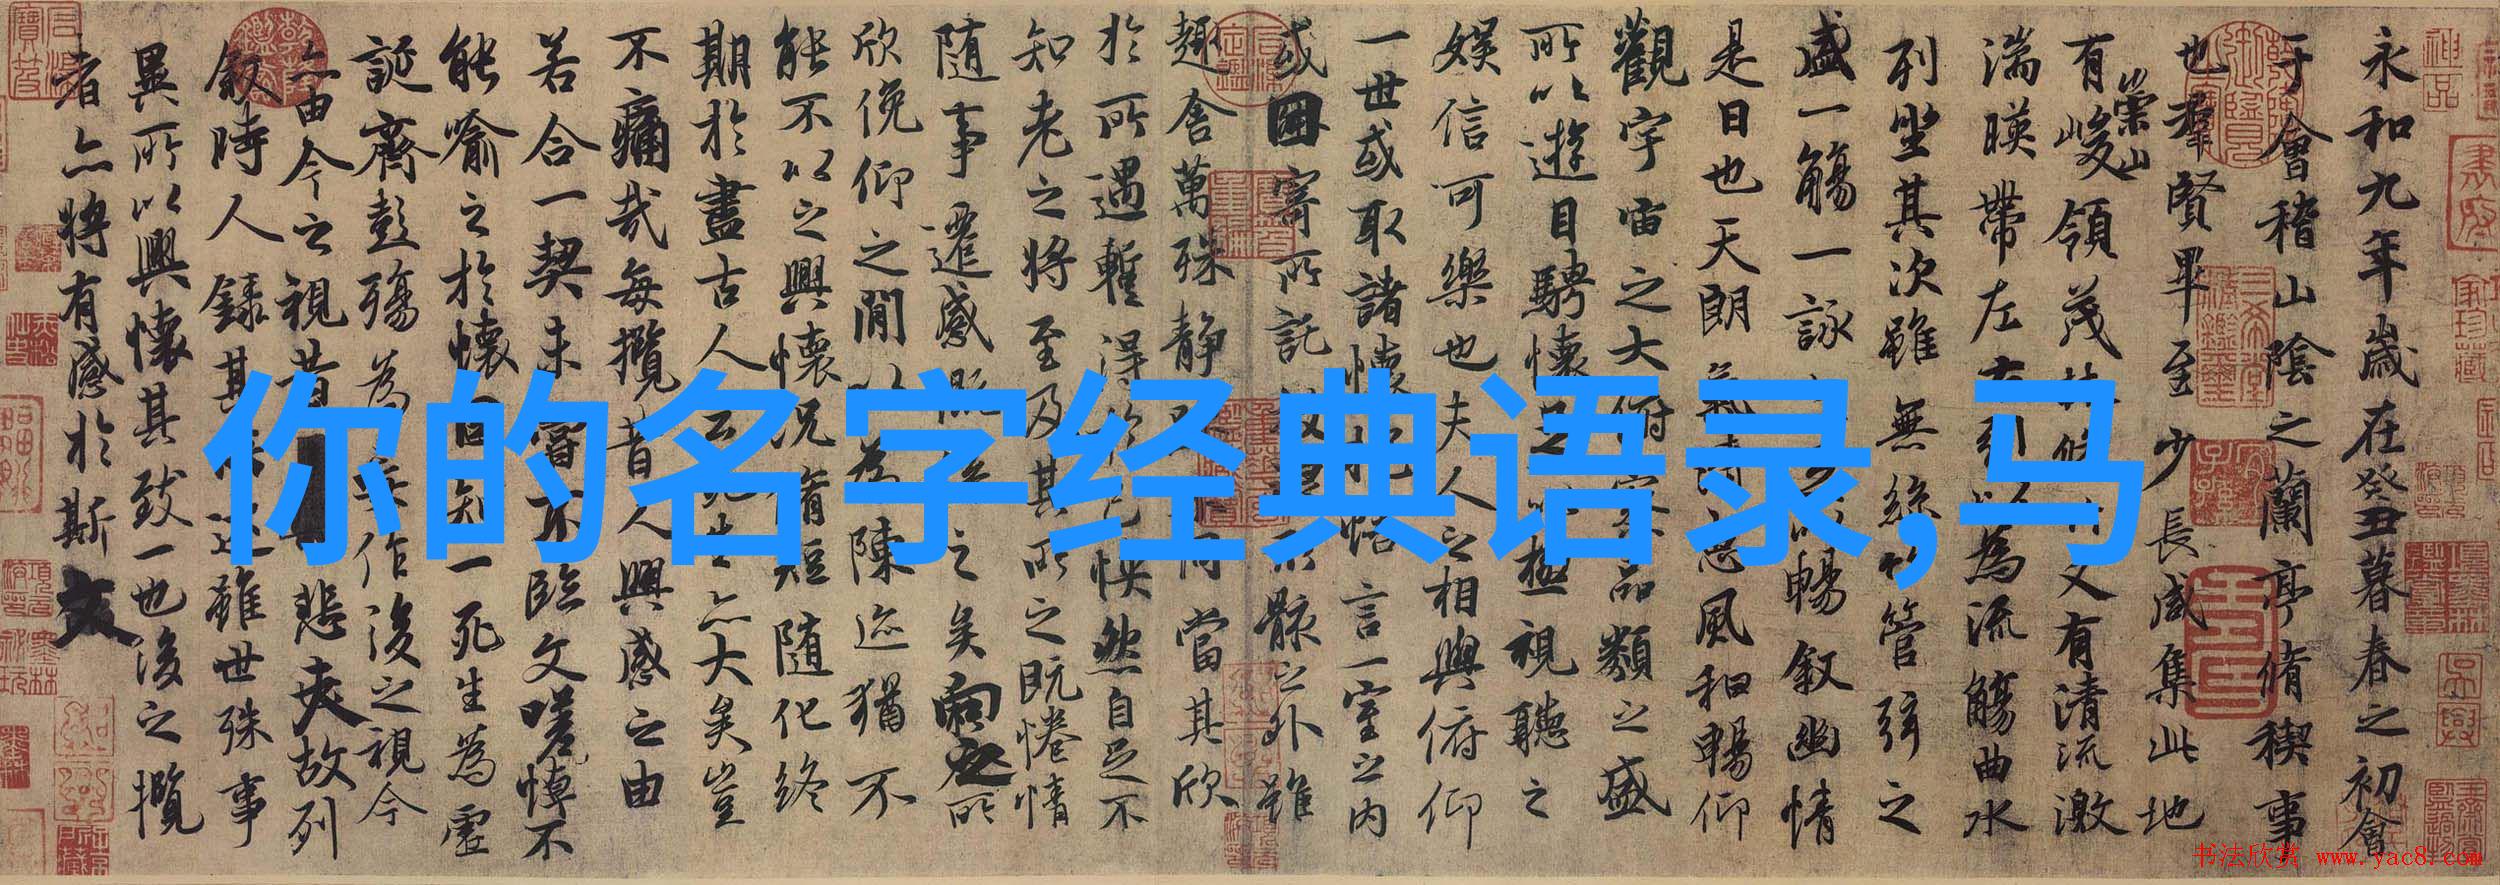 你的名字经典语录,马
永和九年歲在癸丑暮春之初會
于會稽山陰之蘭亭脩稧事
也羣賢畢至少長咸集此地
有崇山峻領茂林脩竹又有清流激
湍暎帶左右引以為流觴曲水
列坐其次雖無絲竹管弦之
盛一觴一詠足以暢叙幽情
是日也天朗氣清惠風和暢仰
觀宇宙之大俯察品類之盛
所以遊目騁懷足以極視聽之
娛信可樂也夫人之相與俯仰
一世或取諸懷抱悟言一室之內
或因寄所託放浪形骸之外雖
趣舍萬殊静不同當其欣
於所遇蹔得於己怏然自足不
知老之將至及其所之既惓情
随事遷感慨係之矣向之所
欣俛仰之閒以為陳迹猶不
能不以之興懷況脩短随化終
期於盡古人云死生亦大矣豈
不痛哉每攬昔人興感之由
若合一契未嘗不臨文嗟悼不
能喻之於懷固知一死生為虛
誕齊彭殤為妄作後之視今
亦由今之視昔悲夫故列
叙時人錄其所述雖世殊事
異所以興懷其致一也後之攬
者亦將有感於斯文
书法欣赏 www.yac8.com